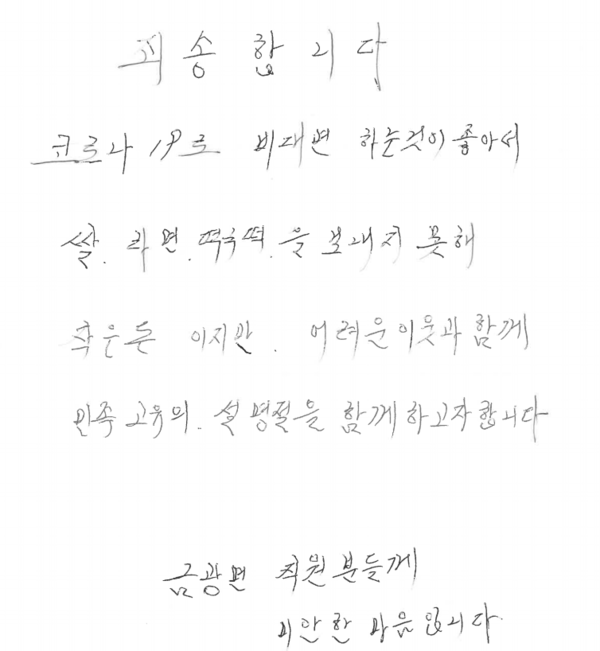 죄송합니다
코로나 19로 비대면 하는것이 좋아서
쌀. 라면. 떡국떡.을 보내지 못해
작은돈 이지만. 어려운이웃과 함께
민족 고유의. 설 명절을 함께하고자합니다
금광면 직원분들께
미안한 마음입니다